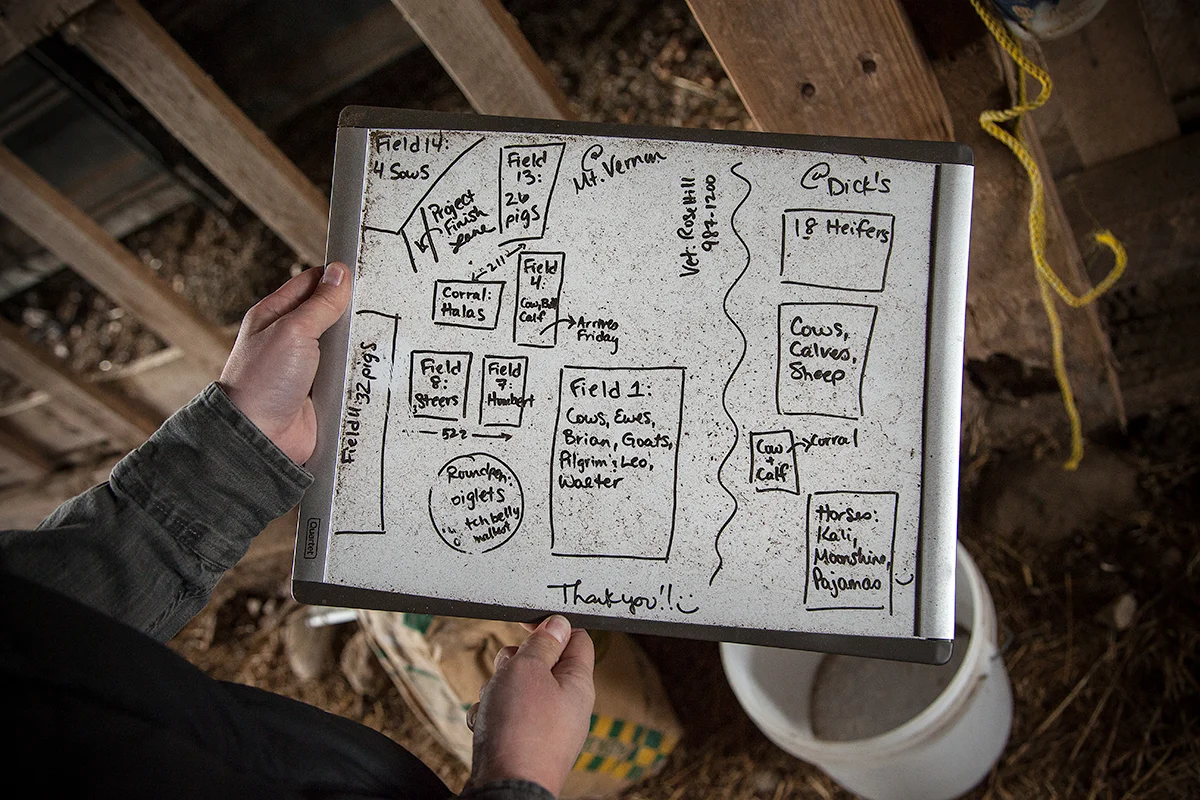 Field 14:
4 Sows
Project
Finish
Field
13:
26
pigs
@
Mt. Vernon
Vet: Rose Hill
987-1200
@Dick's
18 Heifers
211
Corral:
Halas
Field
4:
Cow, Bull
Calf
Arrives
Friday
Cows,
Calves,
Sheep
Field 11: 32 pigs
Field
8:
Steers
Field
7:
Humbert
522
Field 1:
Cows, Ewes,
Brian, Goats,
Pilgrim, Leo,
Walter
Cow
+
Calf
Corral
Roundpen:
piglets
belly
Horses:
Kali,
Moonshine,
Pajamas
Thank you!!
Quartet